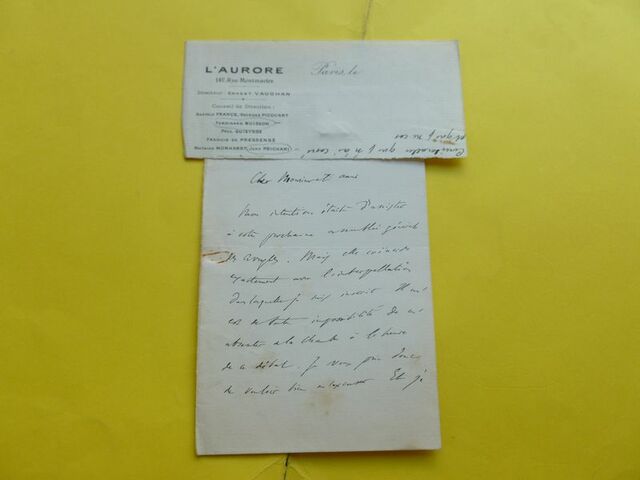 L'AURORE
142, Rue Montmartre
Paris, le
Directeur : ERNEST VAUGHAN
Conseil de Direction :
ANATOLE FRANCE, GEORGES PICQUART
FERDINAND BUISSON
PAUL GUIEYSSE
FRANCIS DE PRESSENSÉ
MATHIAS MORHARDT, JEAN PSICHARI
et que je ne
que je n'ai
Cher Monsieur et ami
Mon intention était d'assister
à votre prochaine assemblée générale
des aveugles. Mais elle coïncide
exactement avec l'interpellation
dans laquelle je suis inscrit. Il m'
est de toute impossibilité de m'
absenter de la Chambre à l'heure
de ce débat. Je vous prie donc
de vouloir bien m'excuser. Et je